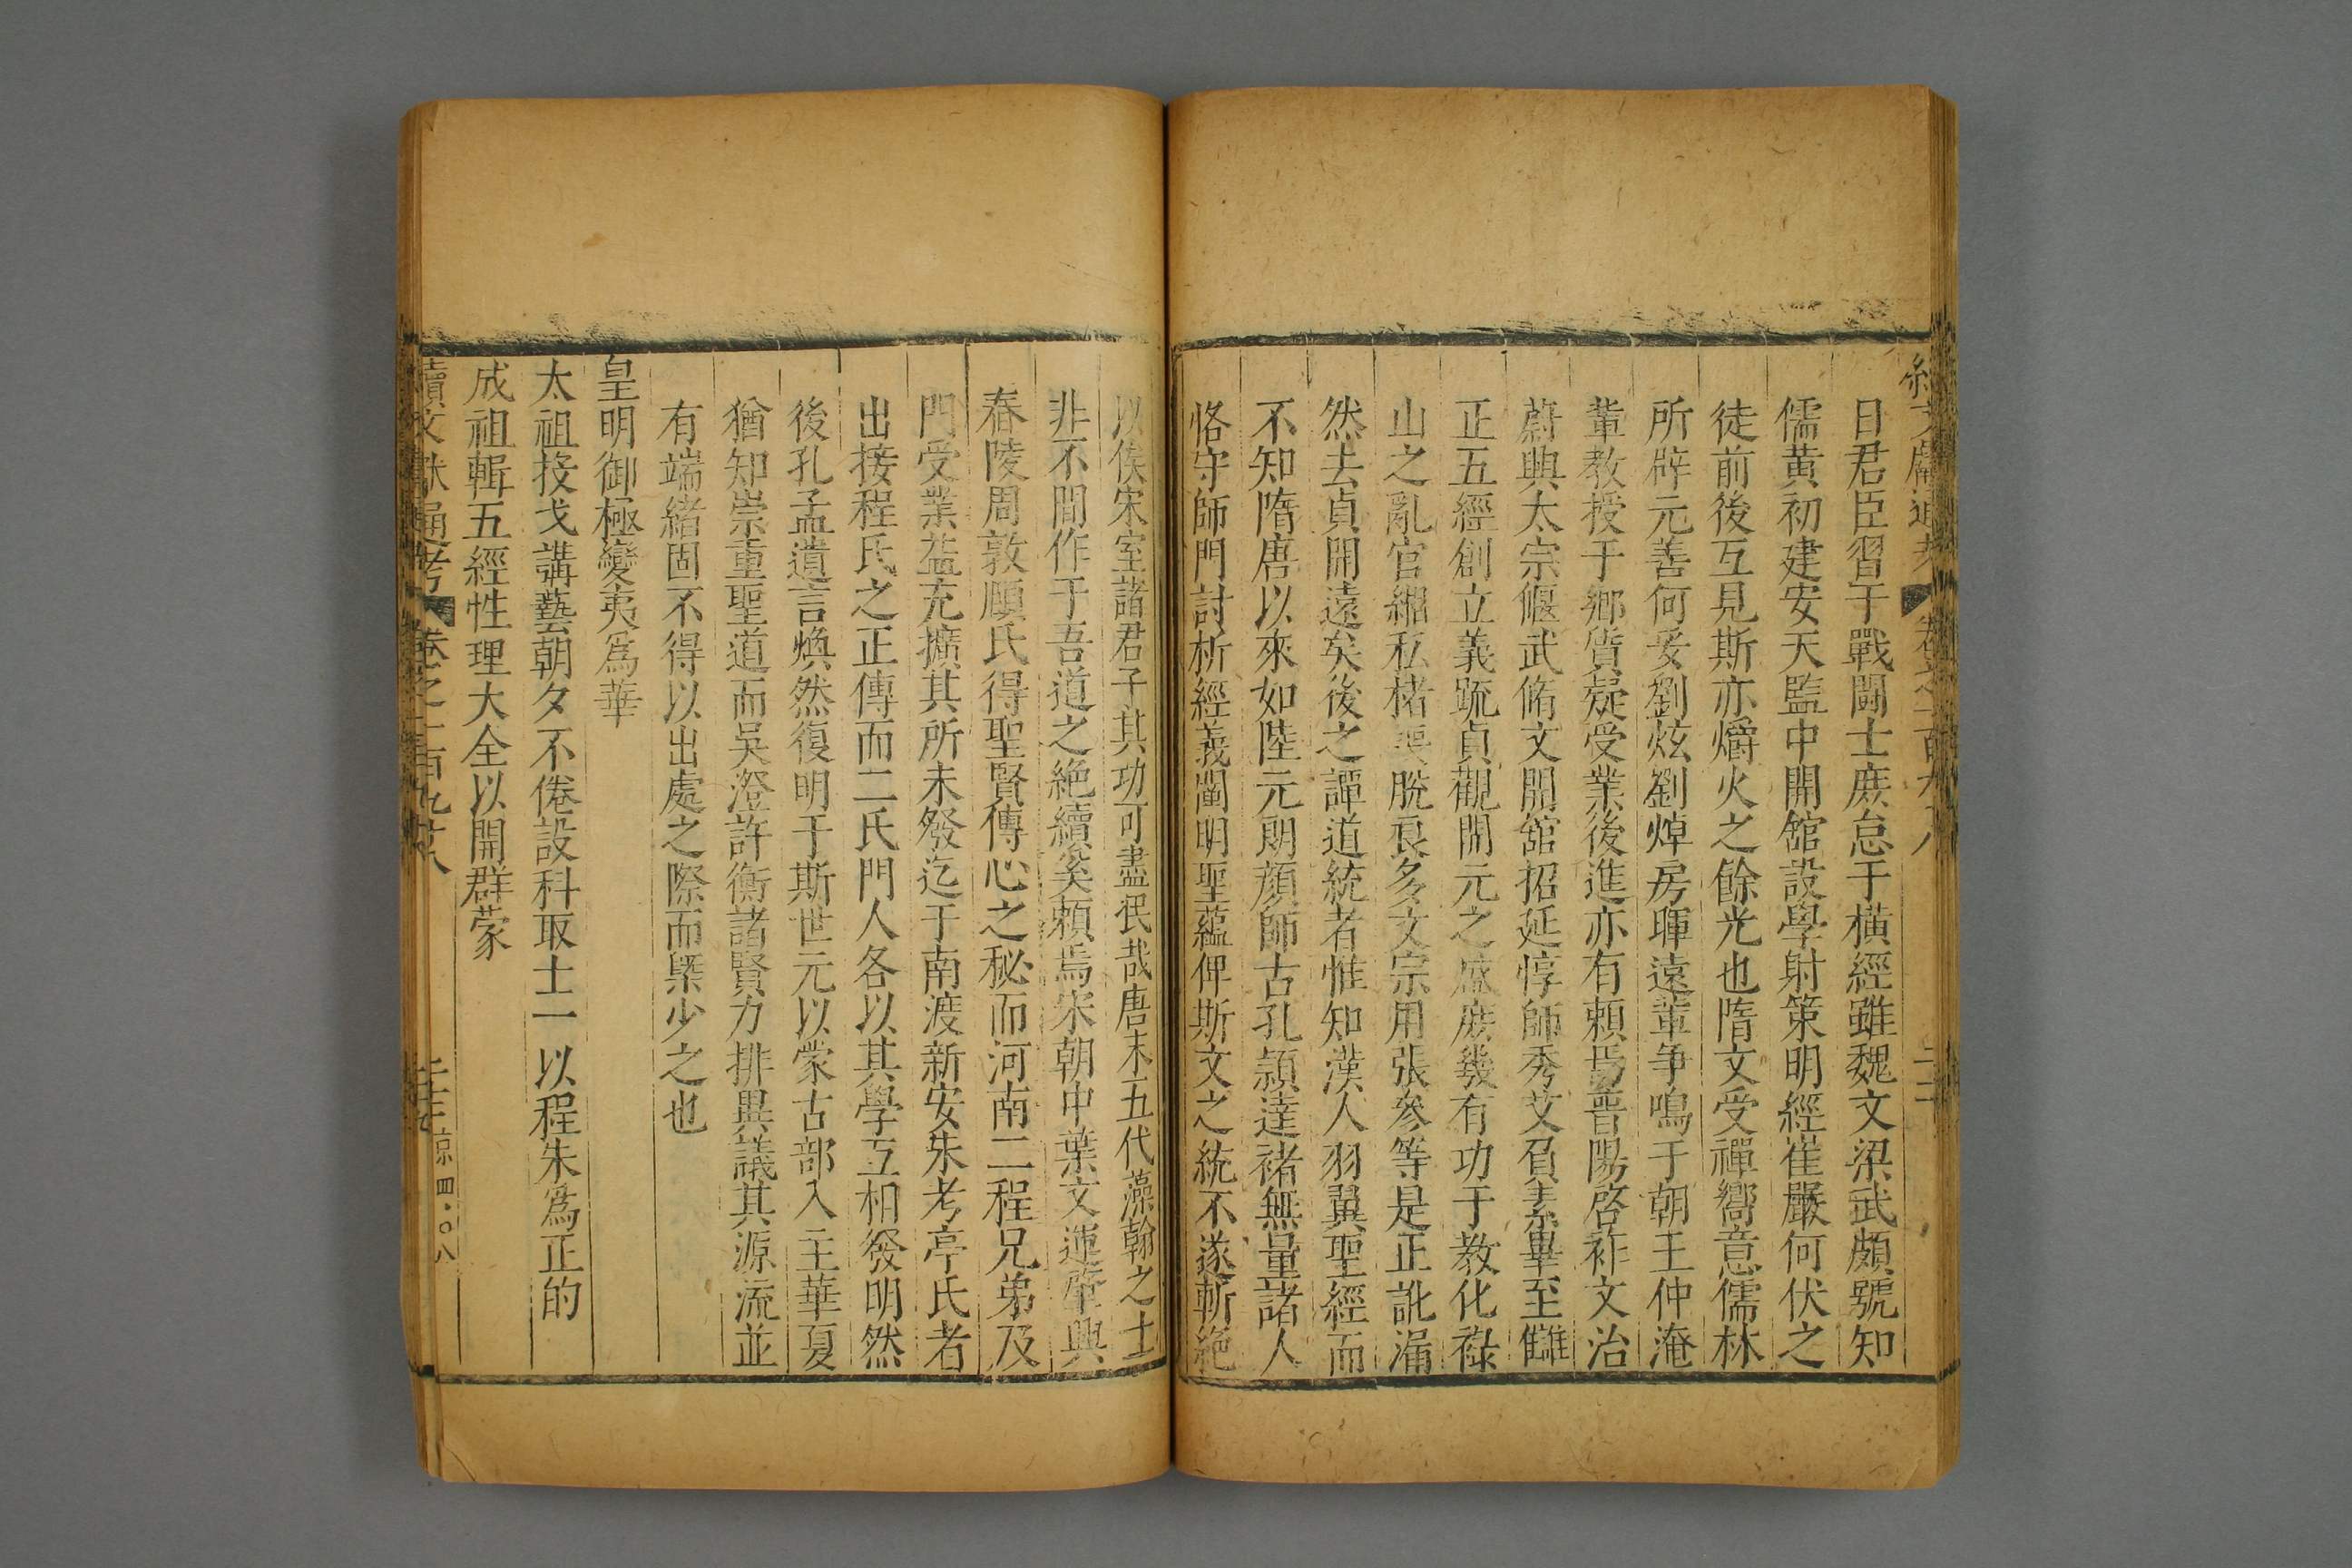 日君臣習于戰鬪士庶怠于橫經雖魏文梁武頗號知
儒黃初建安天監中開舘設學射策明經崔嚴何伏之
徒前後互見斯亦爝火之餘光也隋文受禪嚮意儒林
所辟元善何妥劉炫劉焯房暉遠輩争鳴于朝王仲淹
輩教授于鄉質疑受業後進亦有賴焉晉陽啓祚文治
蔚興太宗偃武脩文開舘招延惇師秀艾負素畢至讎
正五經創立義疏貞觀開元之盛庶幾有功于教化祿
山之亂官綱私楮喪脫良多文宗用張參等是正訛漏
然去貞開遠矣後之譚道統者惟知漢人羽翼聖經而
不知隋唐以來如陸元朗顏師古孔頴達禇無量諸人
恪守師門討析經義闡明聖蘊俾斯文之統不遂斬絕
以俟宋室諸君子其功可盡泯哉唐末五代藻翰之士
非不間作于吾道之絕續奚賴焉宋朝中葉文運肇興
舂陵周敦頤氏得聖賢傳心之秘而河南二程兄弟及
門受業益充擴其所未發迄于南渡新安朱考亭氏者
出接程氏之正傳而二氏門人各以其學互相發明然
後孔孟遺言煥然復明于斯世元以蒙古部入主華夏
猶知崇重聖道而吳澄許衡諸賢力排異議其源流並
有端緒固不得以出處之際而槩少之也
皇明御極變夷爲華
太祖投戈講藝朝夕不倦設科取士一以程朱爲正的
成祖輯五經性理大全以開群蒙
續文獻通考 卷之一百九十八
京 四.〇八